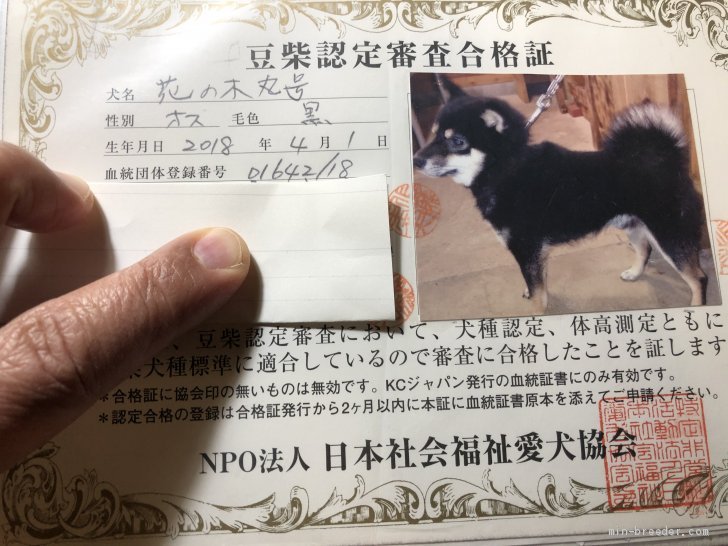 豆柴認定審査合格証
犬名 花の木丸号
性別 オス 毛色 黒
生年月日 2018 年 4 月 1 日
血統団体登録番号 01642/18
、豆柴認定審査において、犬種認定、体高測定ともに
犬種標準に適合しているので審査に合格したことを証します
＊合格証に協会印の無いものは無効です。KCジャパン発行の血統証書にのみ有効です。
＊認定合格の登録は合格証発行から2ヶ月以内に本証に血統証書原本を添えてご申請ください。
NPO法人 日本社会福祉愛犬協会
min-breeder.com